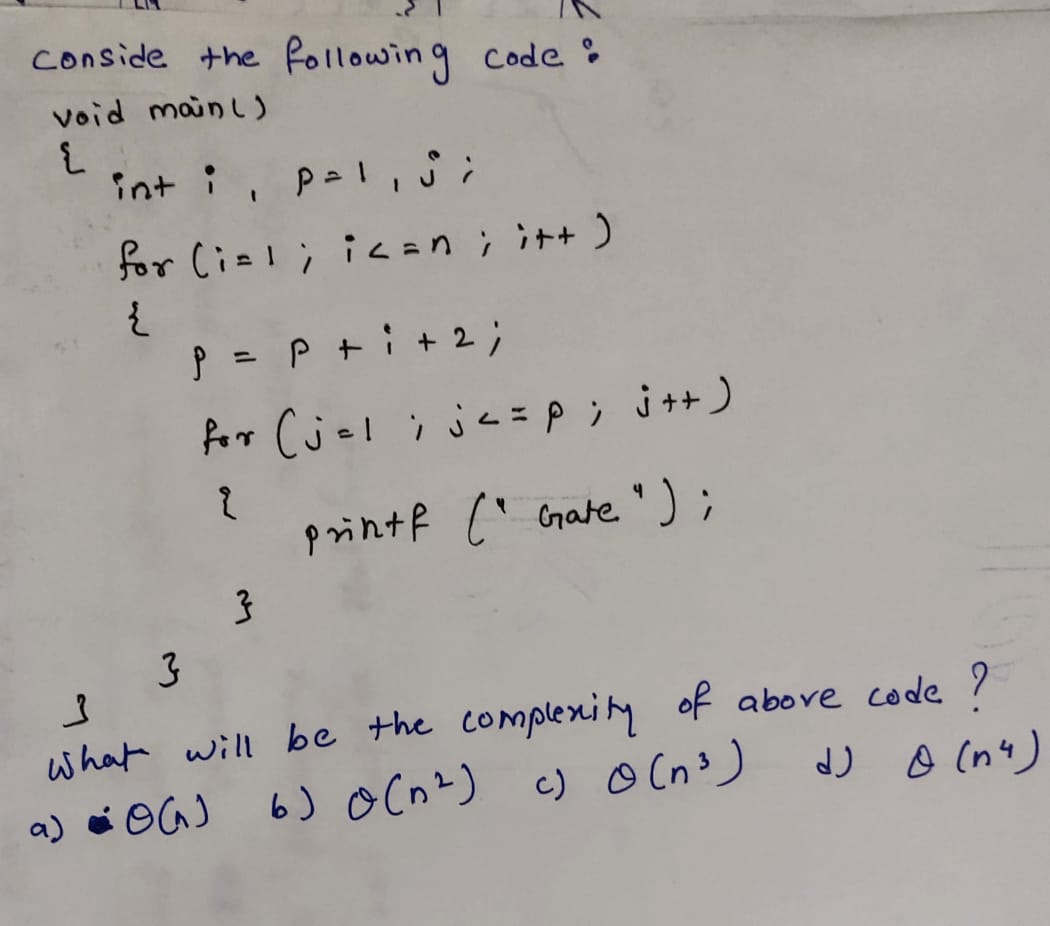 conside the following code :
void main()
{
int i, p=1, j;
for (i=1; i<=n; i++)
{
p = p + i + 2;
for (j=1; j<=p; j++)
{
printf (" Gate ");
}
}
}
What will be the complexity of above code ?
a) Θ(n) b) Θ(n²) c) Θ(n³) d) Θ(n⁴)